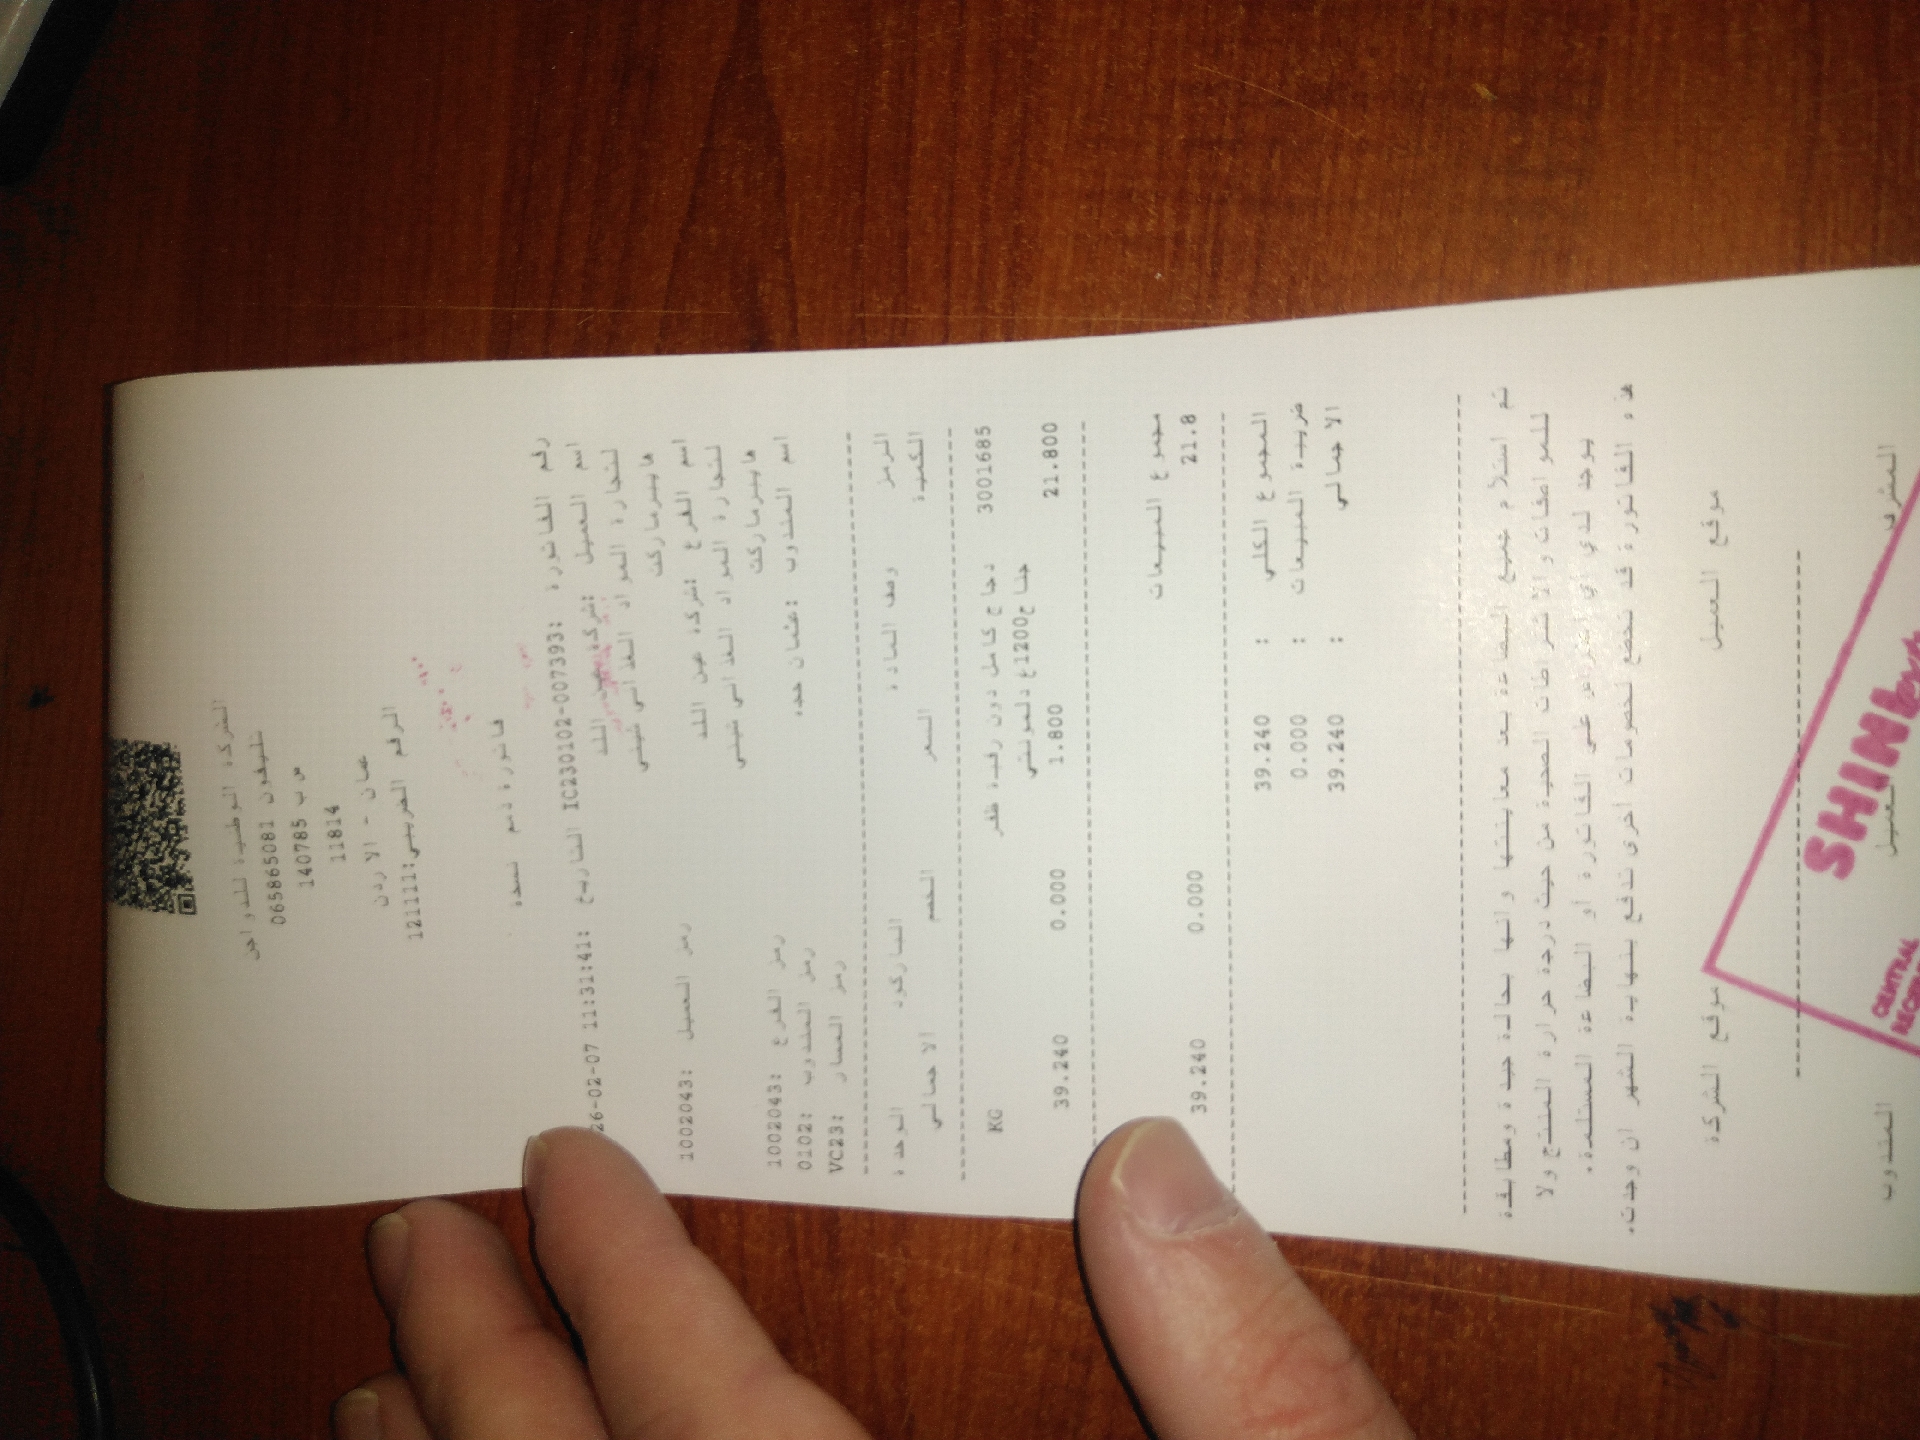 الشركة الوطنية للدواجن
تليفون 065865081
ص ب 140785
11814
عمان - الاردن
الرقم الضريبي:121111
فاتورة ذمم نسخة
رقم الفاتورة :IC230102-007393 التاريخ :26-02-07 11:31:41
اسم العميل :شركة عين اللد
للتجارة المواد الغذائي شيني
هايبرماركت
رمز العميل :1002043
اسم الفرع :شركة عين اللد
للتجارة المواد الغذائي شيني
هايبرماركت
رمز الفرع :1002043
اسم المندوب :عثمان حمد
رمز المندوب :0102
رمز المسار :VC23
الرمز وصف المادة الباركود الوحدة
الكمية السعر الخصم الاجمالي
3001685 دجاج كامل دون رقبة ظفر KG
جناع1200غ دلمونتي
21.800 1.800 0.000 39.240
مجموع المبيعات
21.8 0.000 39.240
المجموع الكلي : 39.240
ضريبة المبيعات : 0.000
الاجمالي : 39.240
تم استلام جميع البضاعة بعد معاينتها وانها بحالة جيدة ومطابقة
للمواصفات والاشتراطات الصحية من حيث درجة حرارة المنتج ولا
يوجد لدي أي اعتراض على الفاتورة أو البضاعة المستلمة.
هذه الفاتورة قد تخضع لخصومات أخرى تدفع بنهاية الشهر ان وجدت.
موقع العميل موقع الشركة
المشرف العميل المندوب
CENTRAL